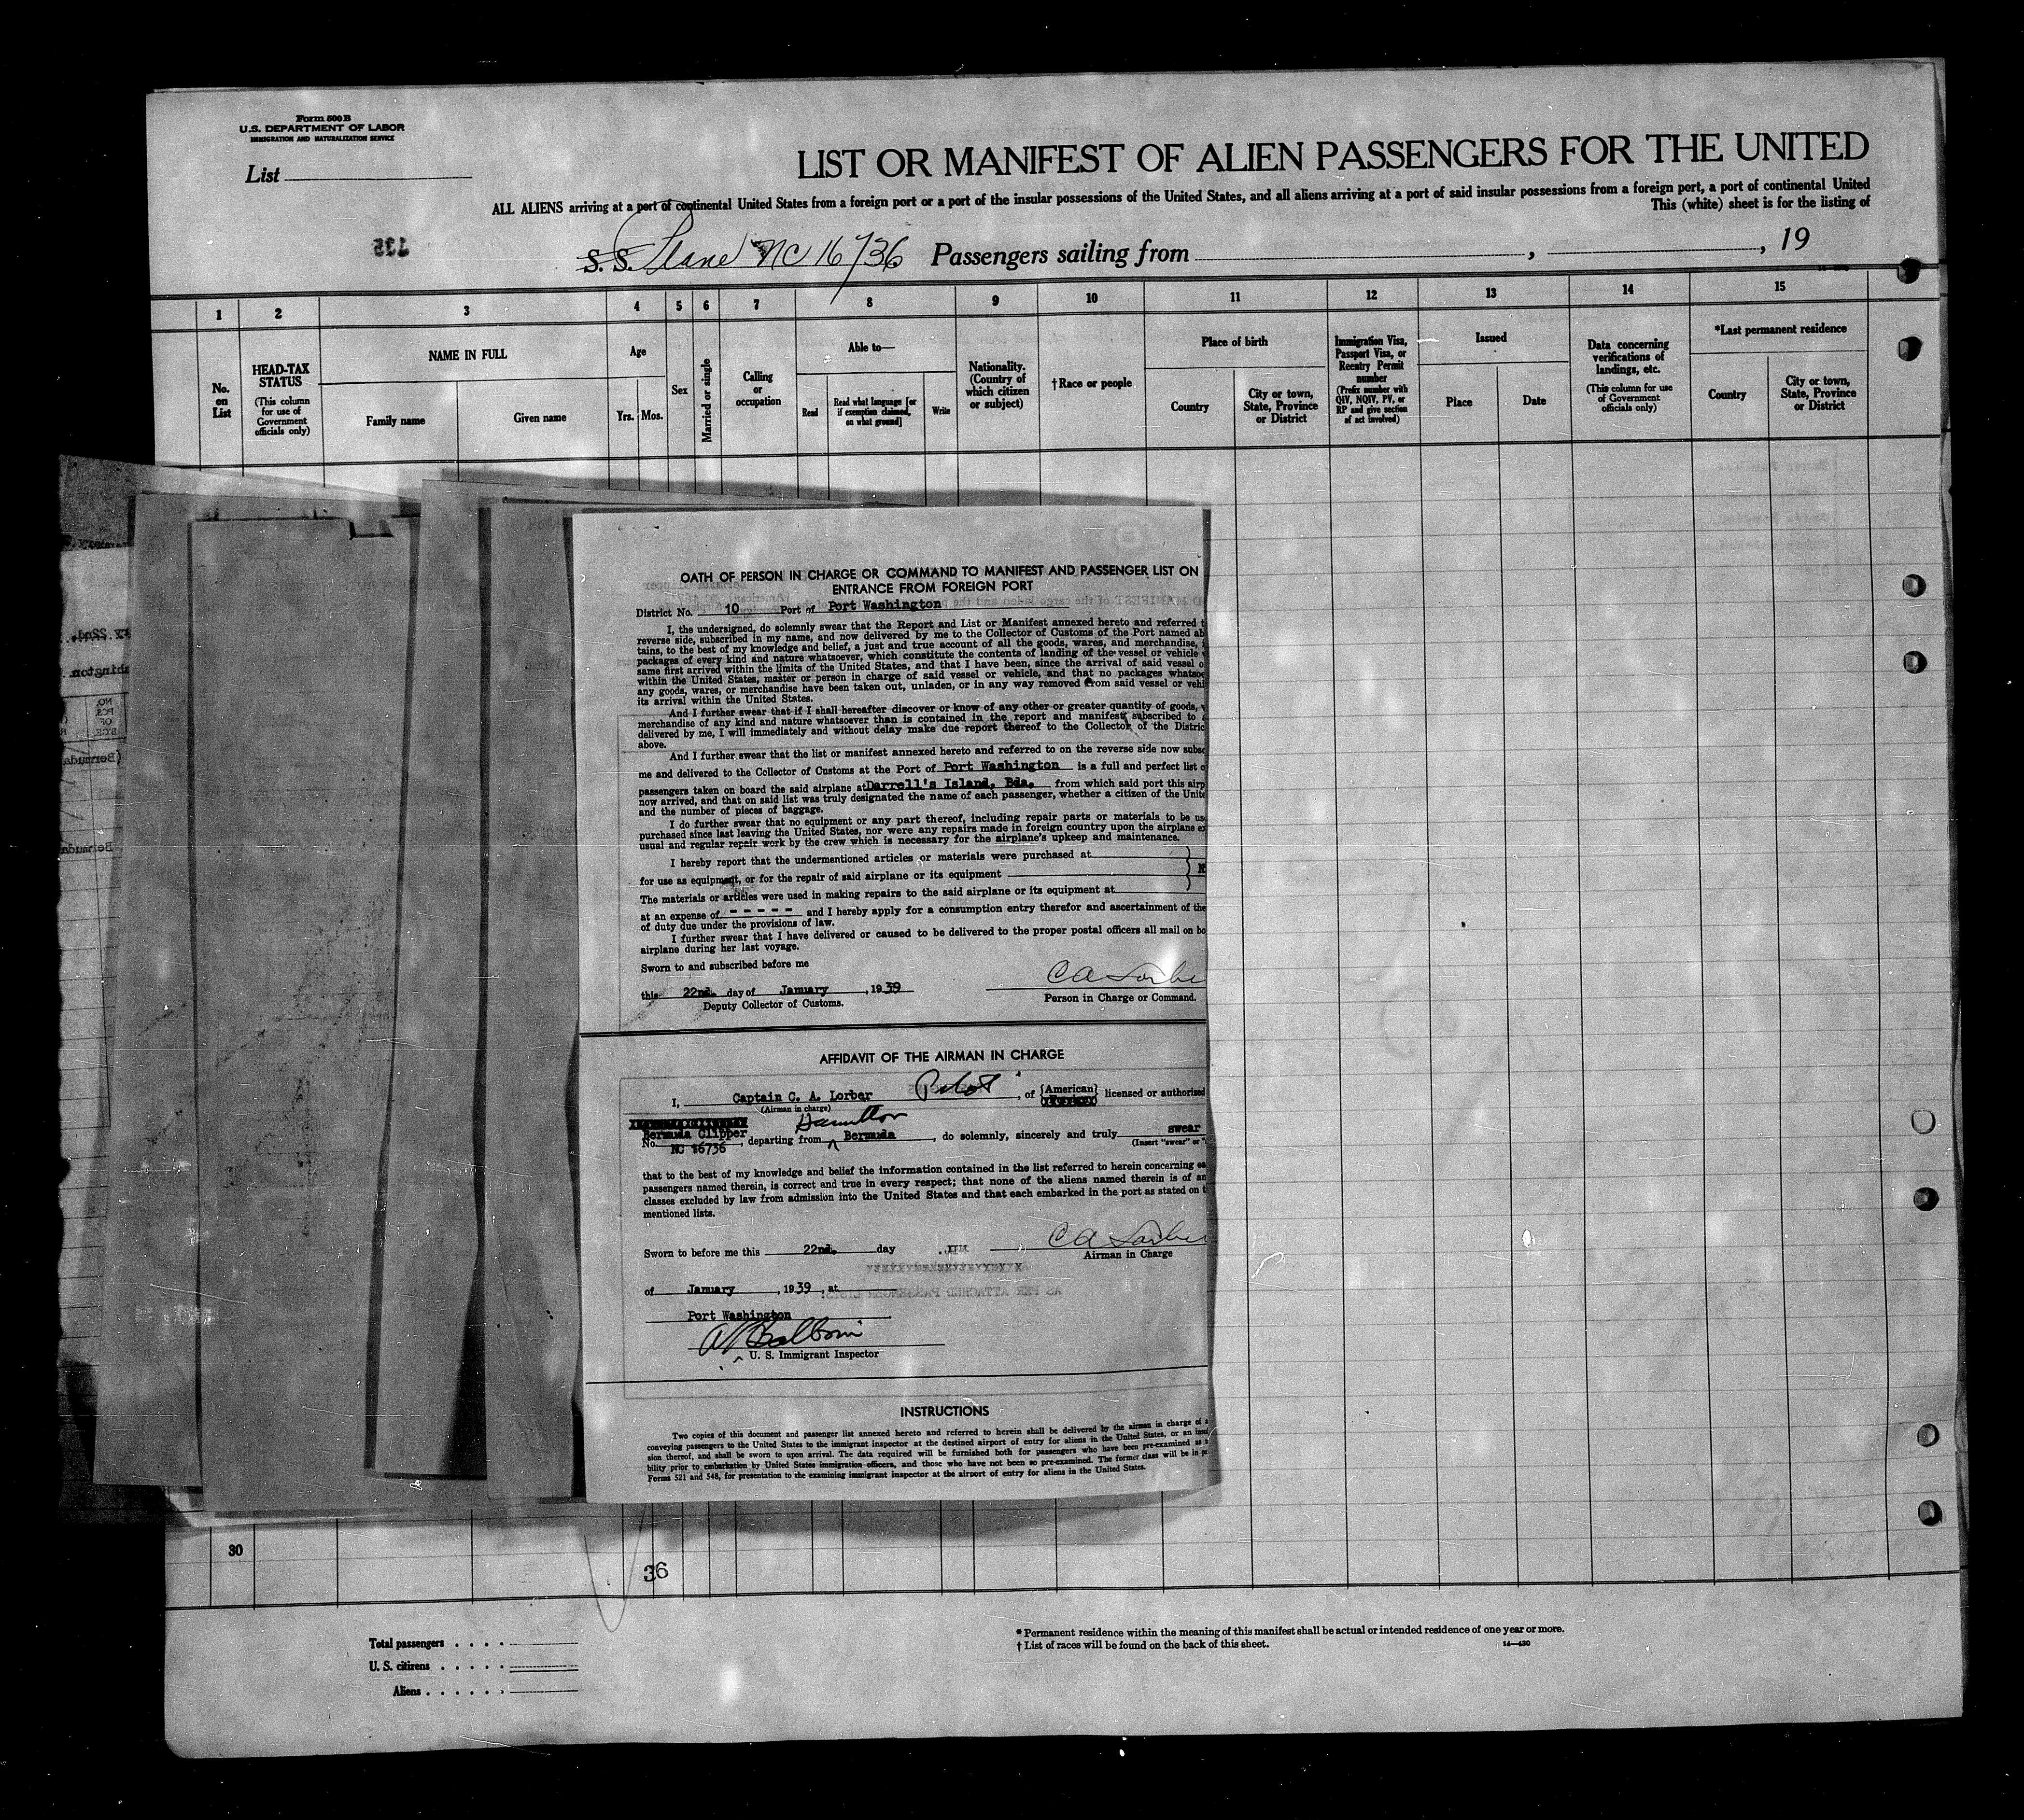 Form 500 B
U.S. DEPARTMENT OF LABOR
IMMIGRATION AND NATURALIZATION SERVICE
List
LIST OR MANIFEST OF ALIEN PASSENGERS FOR THE UNITED
ALL ALIENS arriving at a port of continental United States from a foreign port or a port of the insular possessions of the United States, and all aliens arriving at a port of said insular possessions from a foreign port, a port of continental United
This (white) sheet is for the listing of
S. S. Plane NC 16736 Passengers sailing from , , 19
1 2 3 4 5 6 7 8 9 10 11 12 13 14 15
No. on List
HEAD-TAX STATUS
(This column for use of Government officials only)
NAME IN FULL
Family name
Given name
Age
Yrs. Mos.
Sex
Married or single
Calling or occupation
Able to—
Read
Read what language [or if exemption claimed, on what ground]
Write
Nationality. (Country of which citizen or subject)
† Race or people
Place of birth
Country
City or town, State, Province or District
Immigration Visa, Passport Visa, or Reentry Permit number
(Prefix number with QIV, NQIV, PV, or RP and give section of act involved)
Issued
Place
Date
Data concerning verifications of landings, etc.
(This column for use of Government officials only)
*Last permanent residence
Country
City or town, State, Province or District
OATH OF PERSON IN CHARGE OR COMMAND TO MANIFEST AND PASSENGER LIST ON
ENTRANCE FROM FOREIGN PORT
District No. 10 Port of Port Washington
I, the undersigned, do solemnly swear that the Report and List or Manifest annexed hereto and referred t
reverse side, subscribed in my name, and now delivered by me to the Collector of Customs of the Port named ab
tains, to the best of my knowledge and belief, a just and true account of all the goods, wares, and merchandise,
packages of every kind and nature whatsoever, which constitute the contents of landing of the vessel or vehicle
same first arrived within the limits of the United States, and that I have been, since the arrival of said vessel o
within the United States, master or person in charge of said vessel or vehicle, and that no packages whatsoe
any goods, wares, or merchandise have been taken out, unladen, or in any way removed from said vessel or vehi
its arrival within the United States.
And I further swear that if I shall hereafter discover or know of any other or greater quantity of goods,
merchandise of any kind and nature whatsoever than is contained in the report and manifest subscribed to
delivered by me, I will immediately and without delay make due report thereof to the Collector of the Distric
above.
And I further swear that the list or manifest annexed hereto and referred to on the reverse side now subsc
me and delivered to the Collector of Customs at the Port of Port Washington is a full and perfect list o
passengers taken on board the said airplane at Darrell's Island, Bda. from which said port this airp
now arrived, and that on said list was truly designated the name of each passenger, whether a citizen of the Unite
and the number of pieces of baggage.
I do further swear that no equipment or any part thereof, including repair parts or materials to be us
purchased since last leaving the United States, nor were any repairs made in foreign country upon the airplane ex
usual and regular repair work by the crew which is necessary for the airplane's upkeep and maintenance.
I hereby report that the undermentioned articles or materials were purchased at
for use as equipment, or for the repair of said airplane or its equipment
The materials or articles were used in making repairs to the said airplane or its equipment at
at an expense of - - - - - and I hereby apply for a consumption entry therefor and ascertainment of the
of duty due under the provisions of law.
I further swear that I have delivered or caused to be delivered to the proper postal officers all mail on bo
airplane during her last voyage.
Sworn to and subscribed before me
this 22nd. day of January , 1939 C A Lorbe
Deputy Collector of Customs. Person in Charge or Command.
AFFIDAVIT OF THE AIRMAN IN CHARGE
I, Captain C. A. Lorber Pilot , of {American} licensed or authorised
(Airman in charge)
Hamilton
Bermuda Clipper
No. NC 16736 , departing from Bermuda , do solemnly, sincerely and truly swear
(Insert "swear" or "
that to the best of my knowledge and belief the information contained in the list referred to herein concerning ea
passengers named therein, is correct and true in every respect; that none of the aliens named therein is of an
classes excluded by law from admission into the United States and that each embarked in the port as stated on t
mentioned lists.
Sworn to before me this 22nd. day C A Lorbe
Airman in Charge
of January , 1939 , at
Port Washington
U. S. Immigrant Inspector
INSTRUCTIONS
Two copies of this document and passenger list annexed hereto and referred to herein shall be delivered by the airman in charge of a
conveying passengers to the United States to the immigrant inspector at the destined airport of entry for aliens in the United States, or an
sion thereof, and shall be sworn to upon arrival. The data required will be furnished both for passengers who have been pre-examined as
bility prior to embarkation by United States immigration officers, and those who have not been so pre-examined. The former class will be in
Forms 521 and 548, for presentation to the examining immigrant inspector at the airport of entry for aliens in the United States.
30
36
Total passengers
U. S. citizens
Aliens
* Permanent residence within the meaning of this manifest shall be actual or intended residence of one year or more.
† List of races will be found on the back of this sheet. 14—430